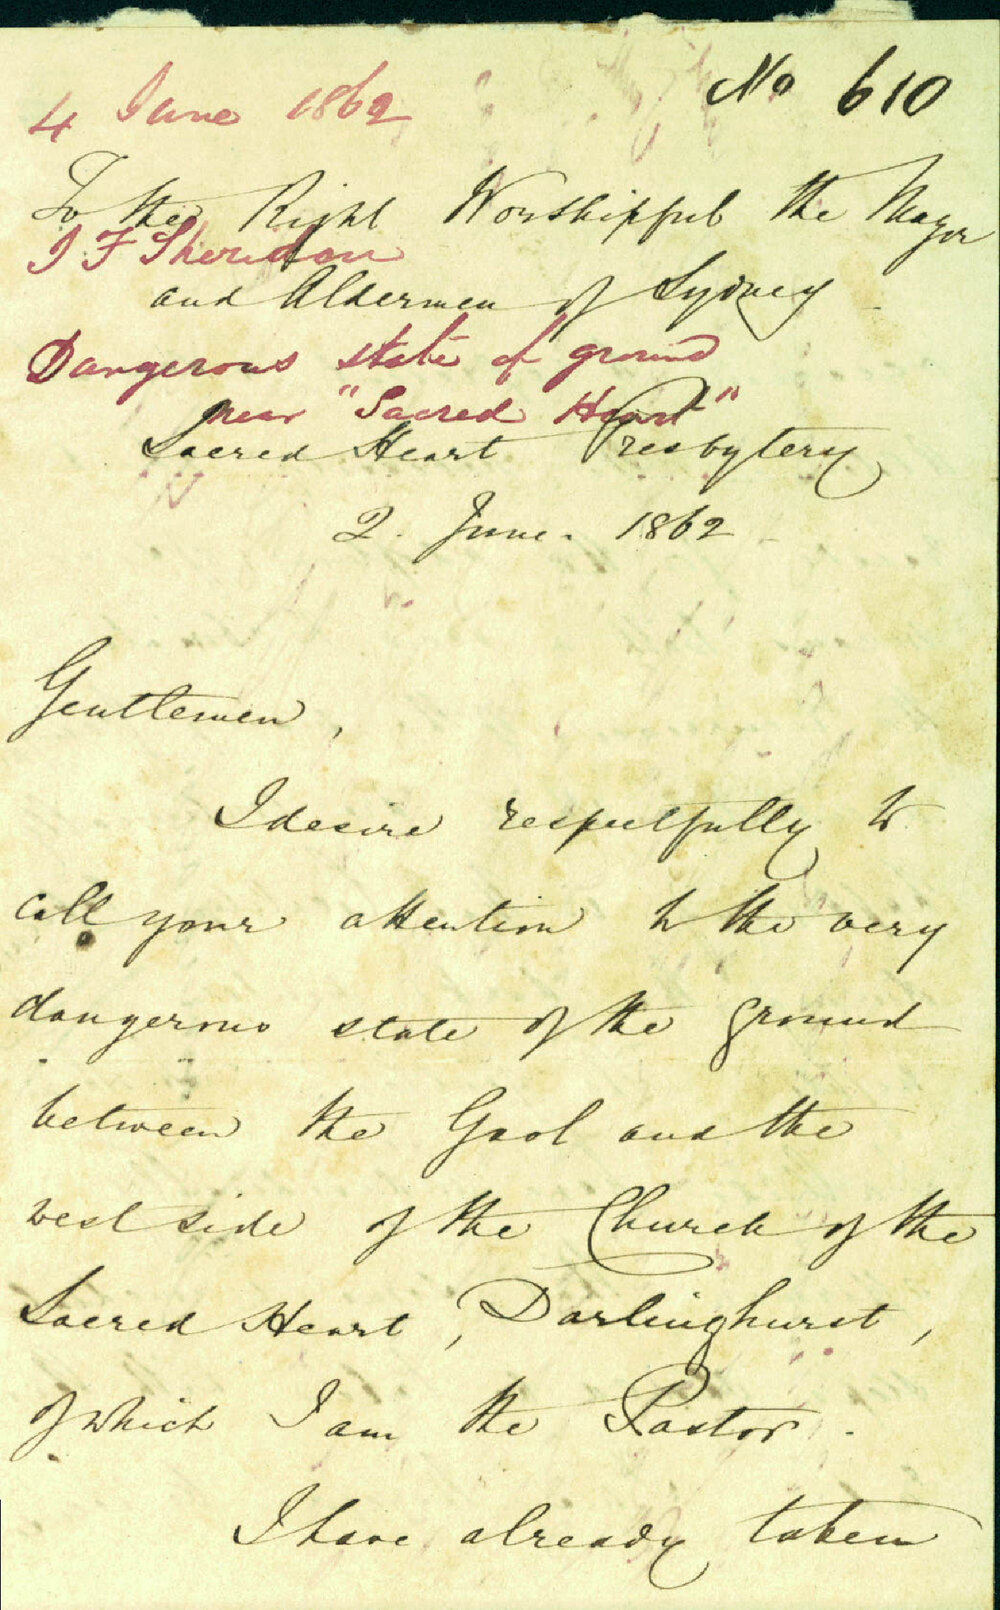 4 June 1862
No 610
To the Right Worshipful the Mayor
J F Sheridan
and Aldermen of Sydney
Dangerous state of ground
near "Sacred Heart"
Sacred Heart Presbytery
2. June. 1862
Gentlemen,
I desire respectfully to
call your attention to the very
dangerous state of the ground
between the Gaol and the
west side of the Church of the
Sacred Heart, Darlinghurst,
of which I am the Pastor.
I have already taken